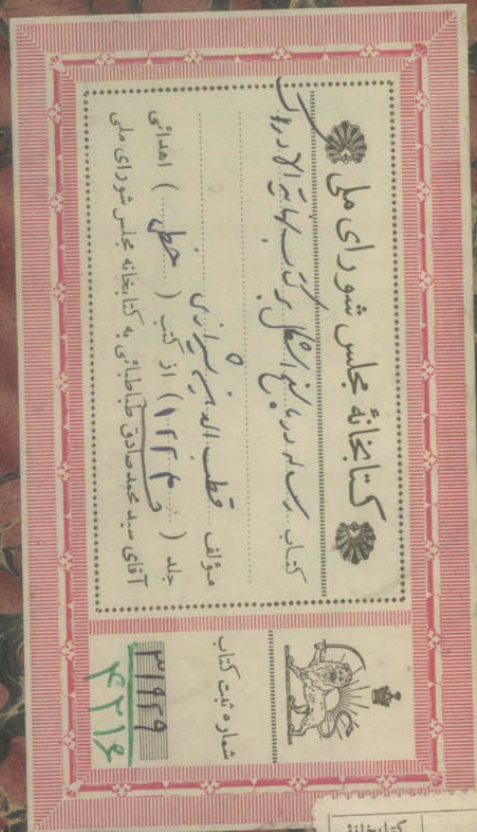 کتابخانهٔ مجلس شورای ملی
کتاب رساله در
نهایة الادراک
مؤلف قطب الدین شیرازی
جلد (۱۲۲۴) از کتب (خطی) اهدائی
آقای سید محمد صادق طباطبائی به کتابخانه مجلس شورای ملی
شماره ثبت کتاب
۳۱۹۲۹
۴۲۱۶
کتابخانهٔ